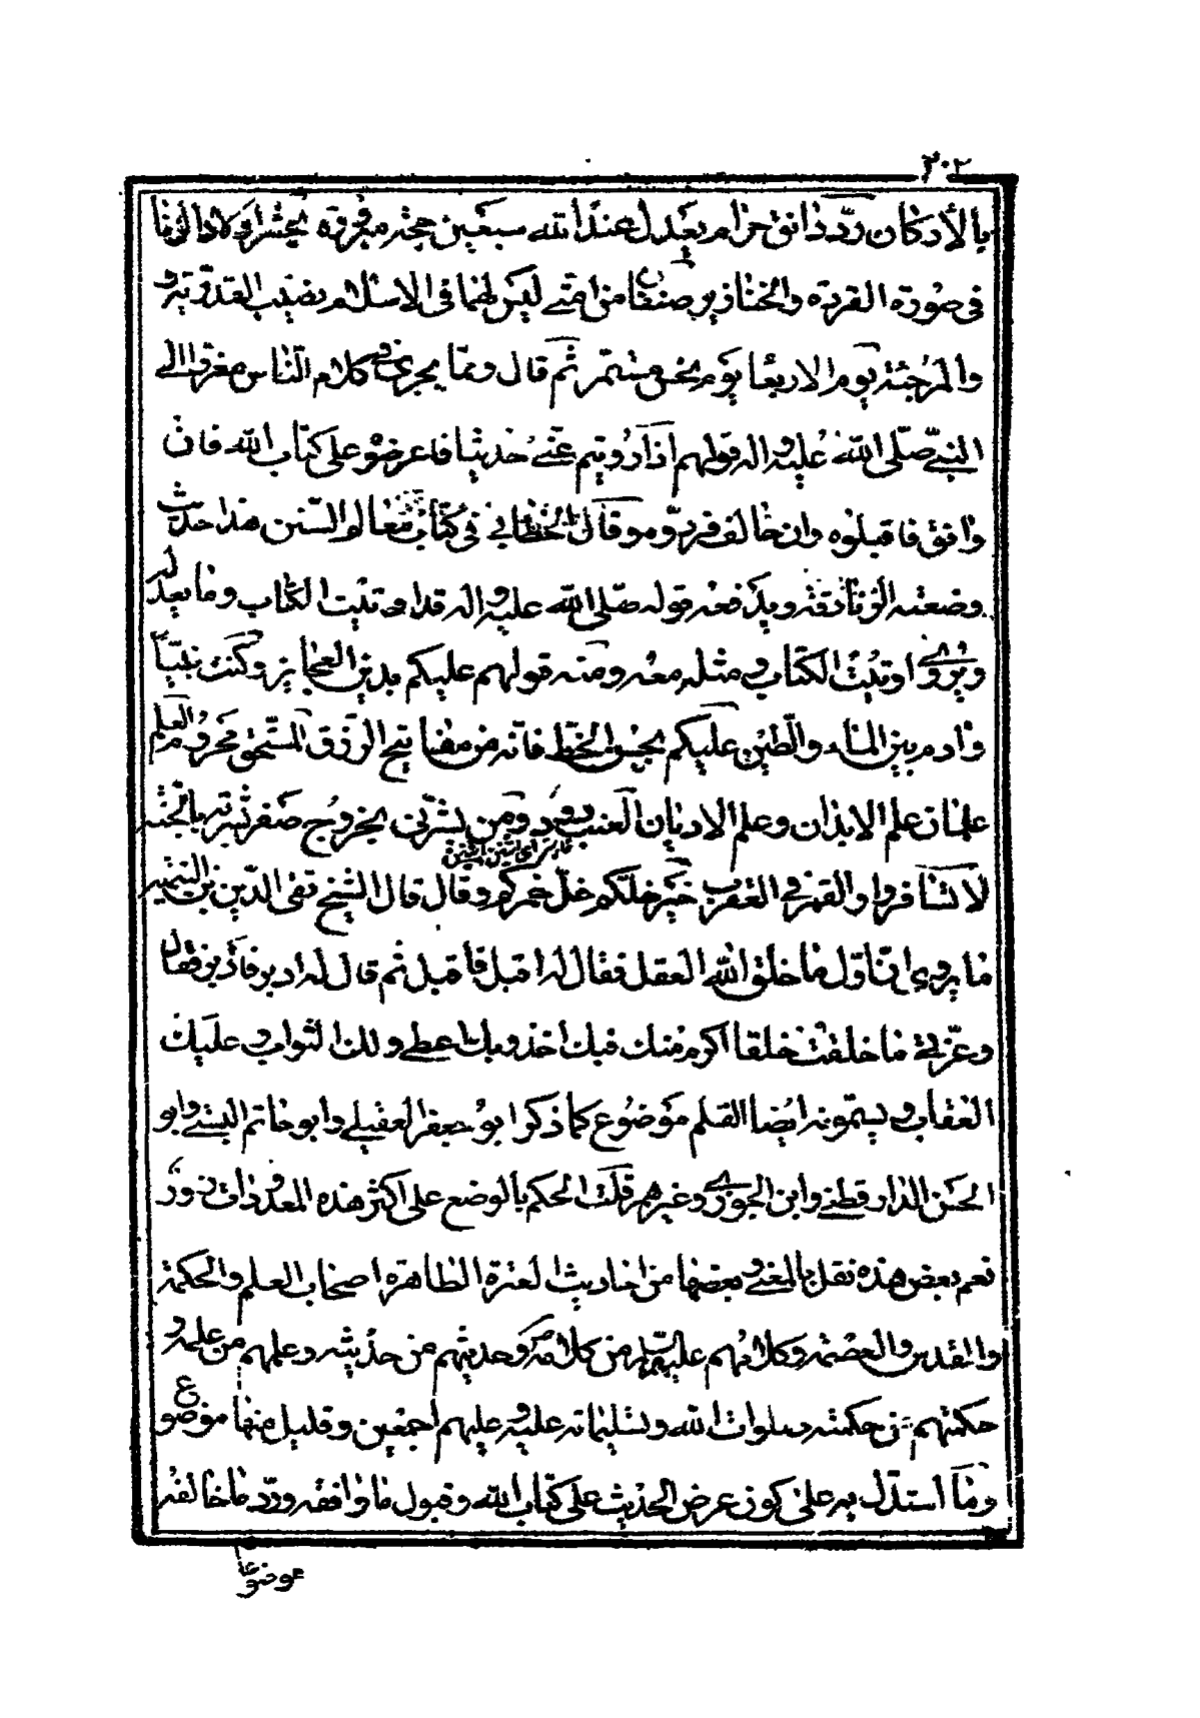 ٢٠٢
بالأركان ردّ دانق حرام يعدل عند الله سبعين حجة مبرورة يحشر أولاد الزنا
في صورة القردة والخنازير صنفان من امتي ليس لهما في الاسلام نصيب القدرية و
والمرجئة يوم الاربعا يوم نحس مستمر ثم قال ومما يجري في كلام الناس معزوا الي
النبي صلى الله عليه واله قولهم اذا رويتم عني حديثا فاعرضوه على كتاب الله فان
وافق فاقبلوه وان خالف فردوه وقال الخطابي في كتاب معالم السنن هذا حديث
وضعته الزنادقة ويدفعه قوله صلى الله عليه واله قد اوتيت الكتاب وما يعدله
ويروى اوتيت الكتاب ومثله معه ومنه قولهم عليكم بدين العجايز وكنت نبيّاً
وادم بين الماء والطين عليكم بحسن الخط فانه من مفاتيح الرزق المستحق محروم العلم
علمان علم الابدان وعلم الاديان العنب دو دو ومن بشرني بخروج صفر بشرته بالجنة
لا تسافروا والقمر في العقرب خير خلكم خل خمركم وقال قال الشيخ تقى الدين بن التيمية
ما يروى ان اول ما خلق الله العقل فقال له اقبل فاقبل ثم قال له ادبر فادبر فقال
وعزتي ما خلقت خلقا اكرم منك فبك اخذ وبك اعطي ولك الثواب وعليك
العقاب ويسمونه ايضا القلم موضوع كما ذكر ابو جعفر العقيلي وابو حاتم البستي وابو
الحسن الدارقطني وابن الجوزي وغيرهم قلت الحكم بالوضع على اكثر هذه المعدودات زور
نعم بعض هذه نقل بالمغني وبعضها من احاديث العترة الطاهرة اصحاب العلم والحكمة
والقدس والعصمة وكلامهم عليهم السلام من كلامه ص وحديثهم من حديثه وعلمهم من علمه و
حكمتهم من حكمته صلوات الله وتسليماته عليه وعليهم اجمعين وقليل منها موضوع
وما استدل به على كون عرض الحديث على كتاب الله وقبول ما وافقه ورد ما خالفه
موضوعا